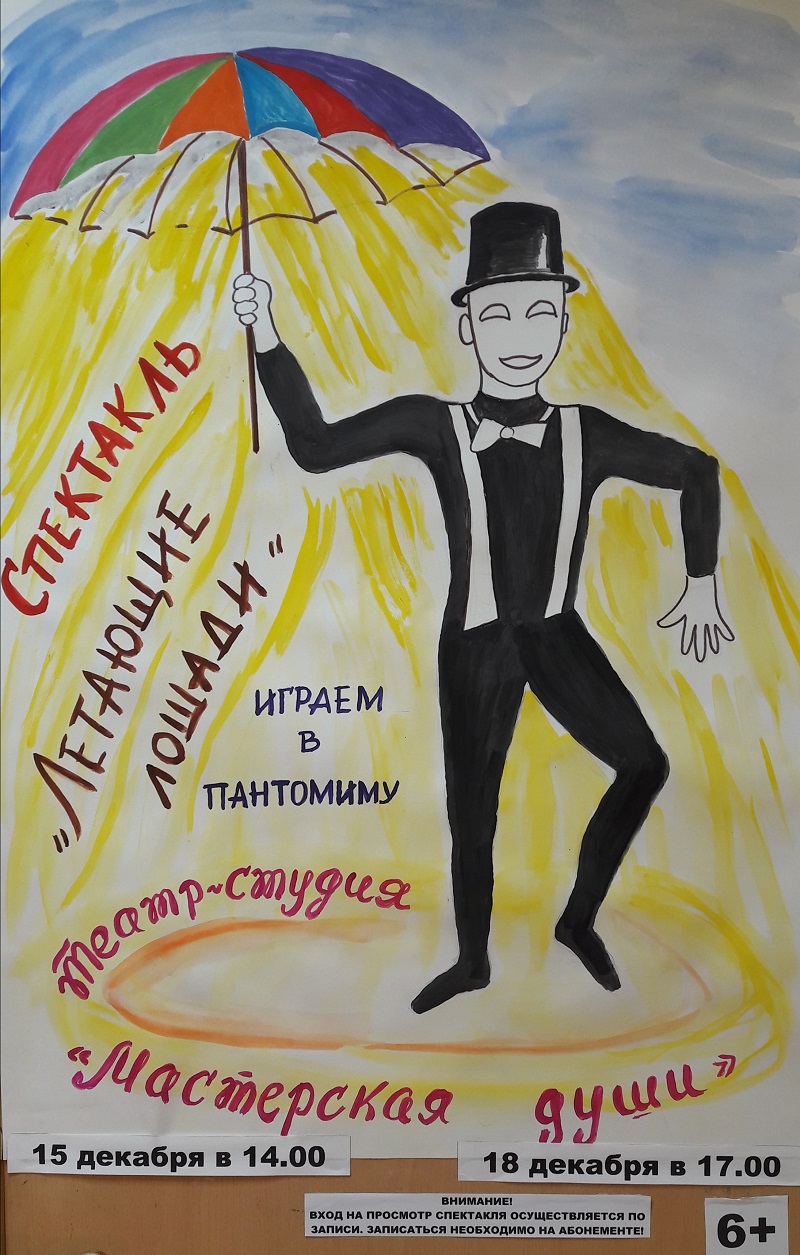 Спектакль
„Летающие
лошади"
ИГРАЕМ
В
ПАНТОМИМУ
театр-студия
"Мастерская души"
15 декабря в 14.00
18 декабря в 17.00
ВНИМАНИЕ!
ВХОД НА ПРОСМОТР СПЕКТАКЛЯ ОСУЩЕСТВЛЯЕТСЯ ПО
ЗАПИСИ. ЗАПИСАТЬСЯ НЕОБХОДИМО НА АБОНЕМЕНТЕ!
6+